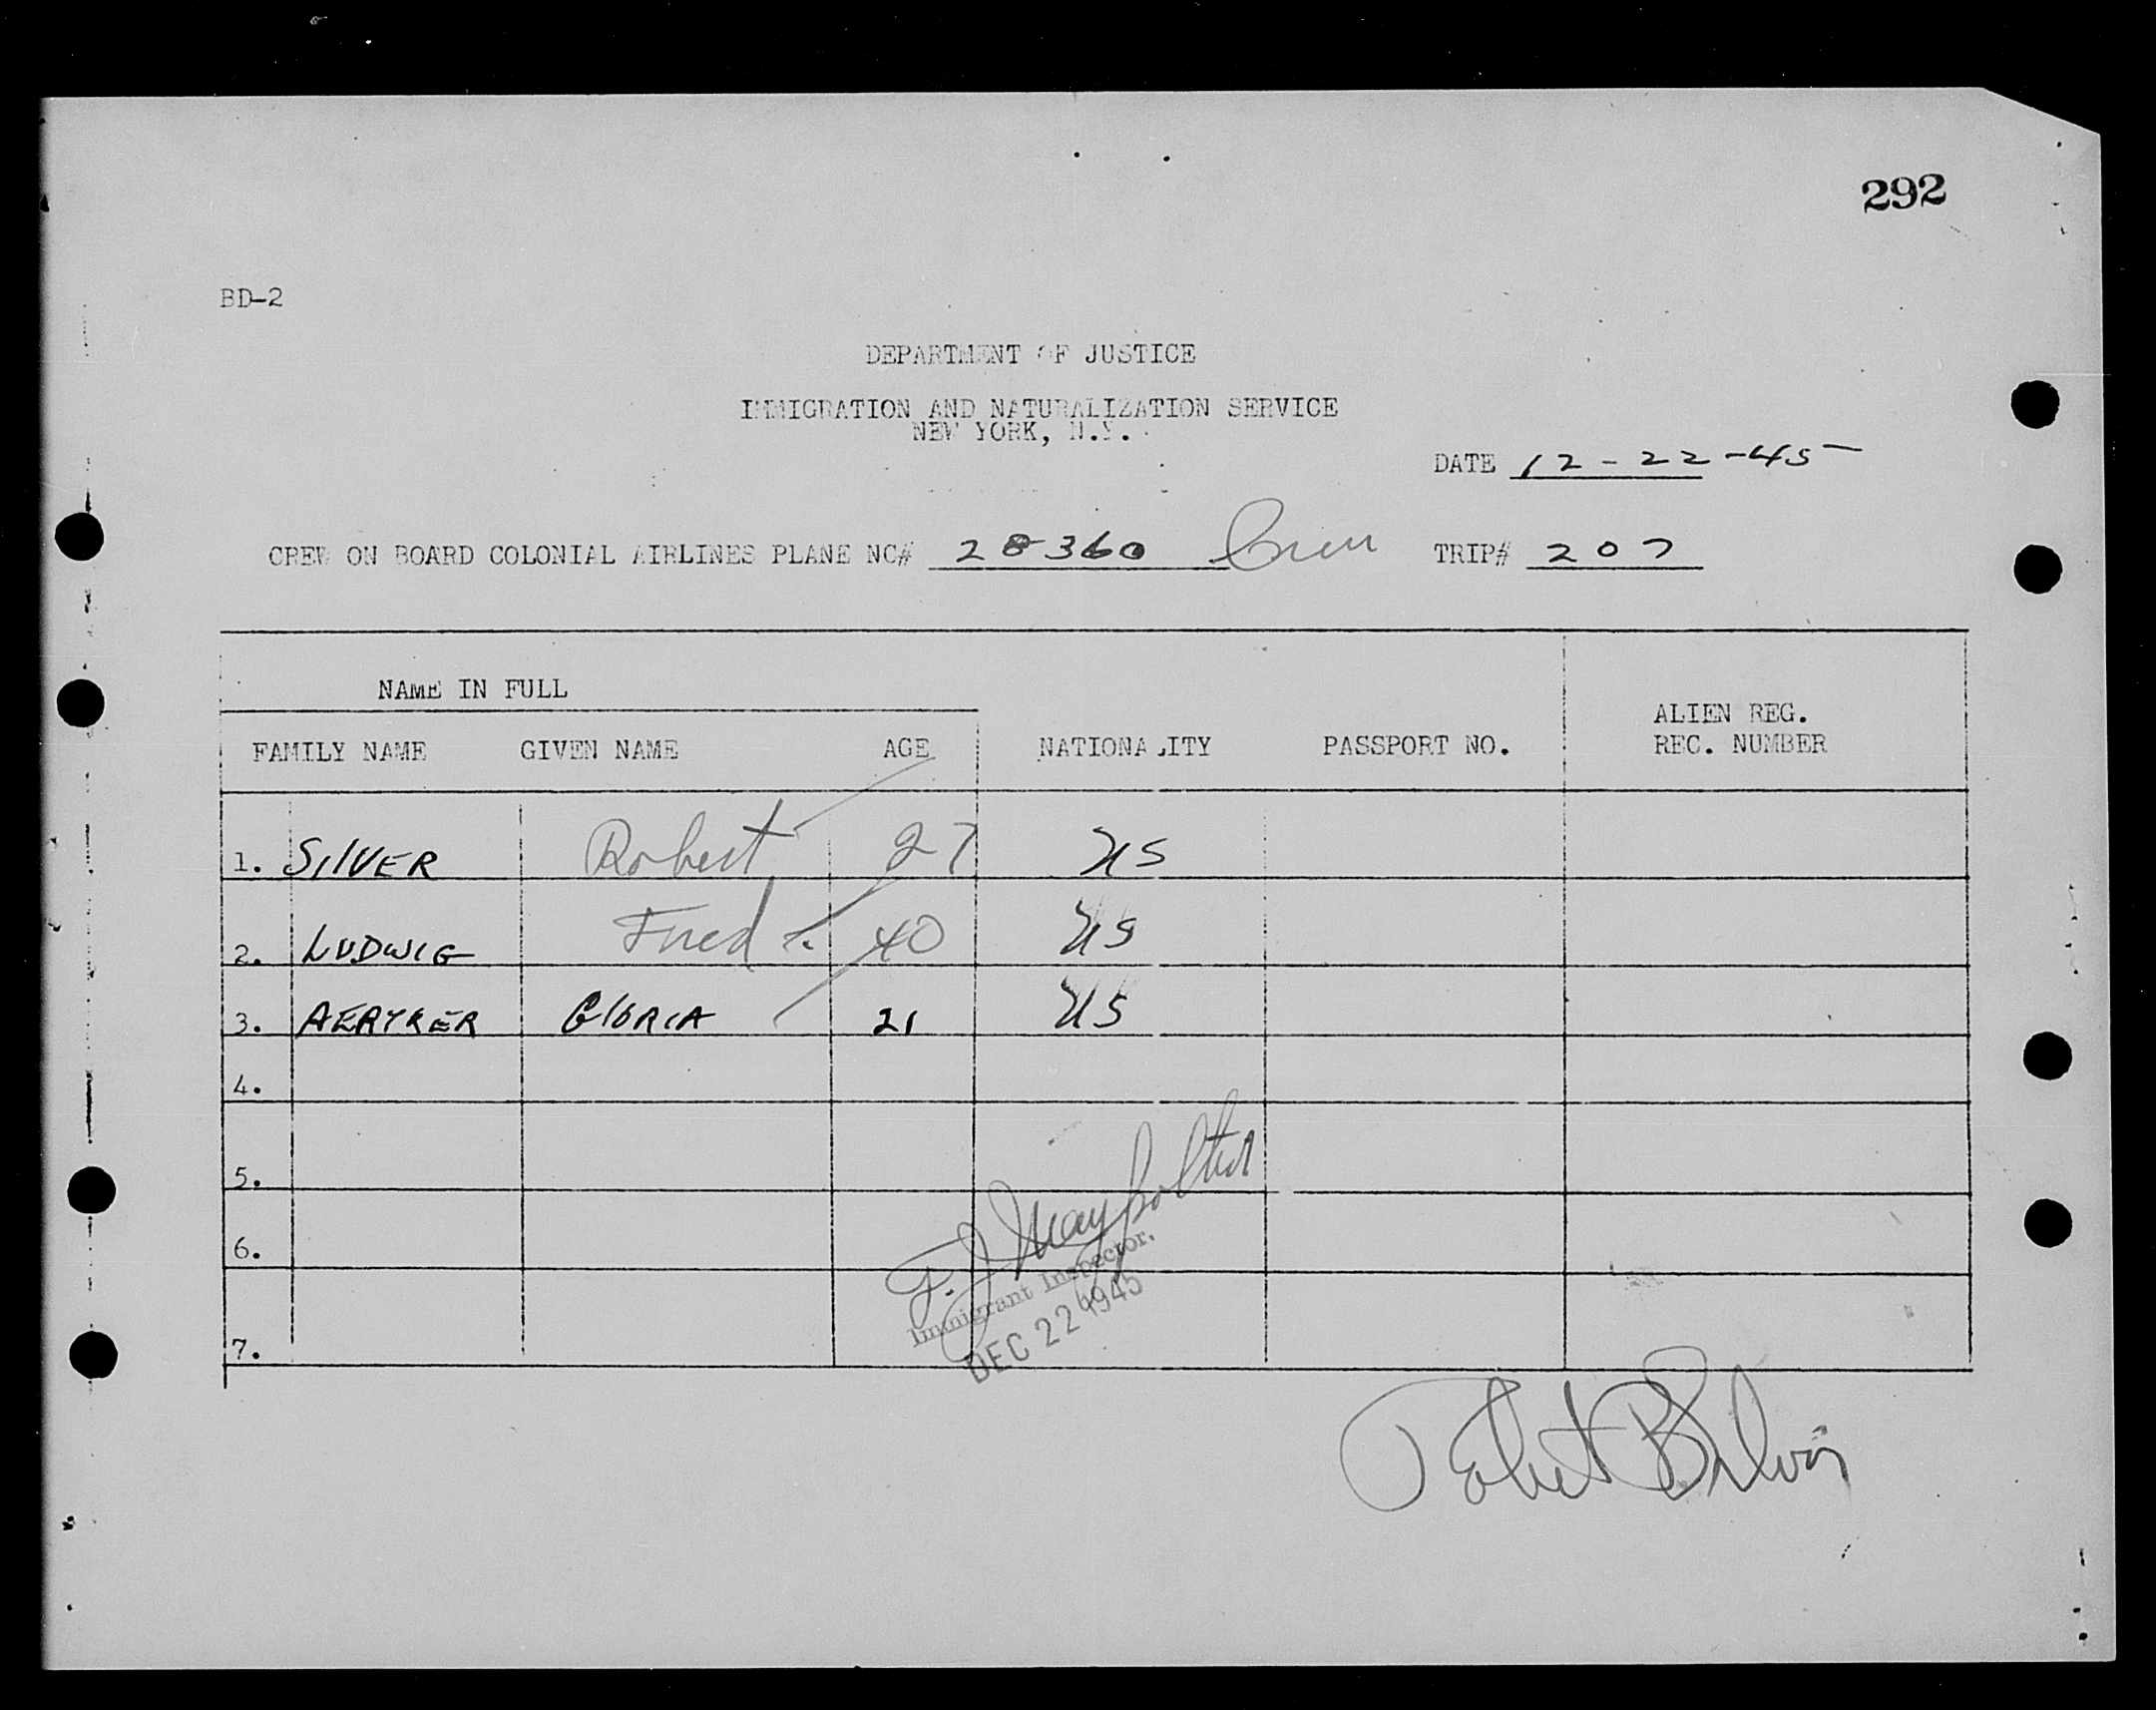 292
BD-2
DEPARTMENT OF JUSTICE
IMMIGRATION AND NATURALIZATION SERVICE
NEW YORK, N.Y.
DATE 12-22-45
CREW ON BOARD COLONIAL AIRLINES PLANE NC# 28360 Crew TRIP# 207
NAME IN FULL
FAMILY NAME GIVEN NAME AGE NATIONALITY PASSPORT NO. ALIEN REG. REC. NUMBER
1. SILVER Robert 27 US
2. LUDWIG Fred 40 US
3. GLORIA 21 US
4.
5.
6.
7.
F. J.
Immigrant Inspector.
DEC 22 1945
Robert B Silver